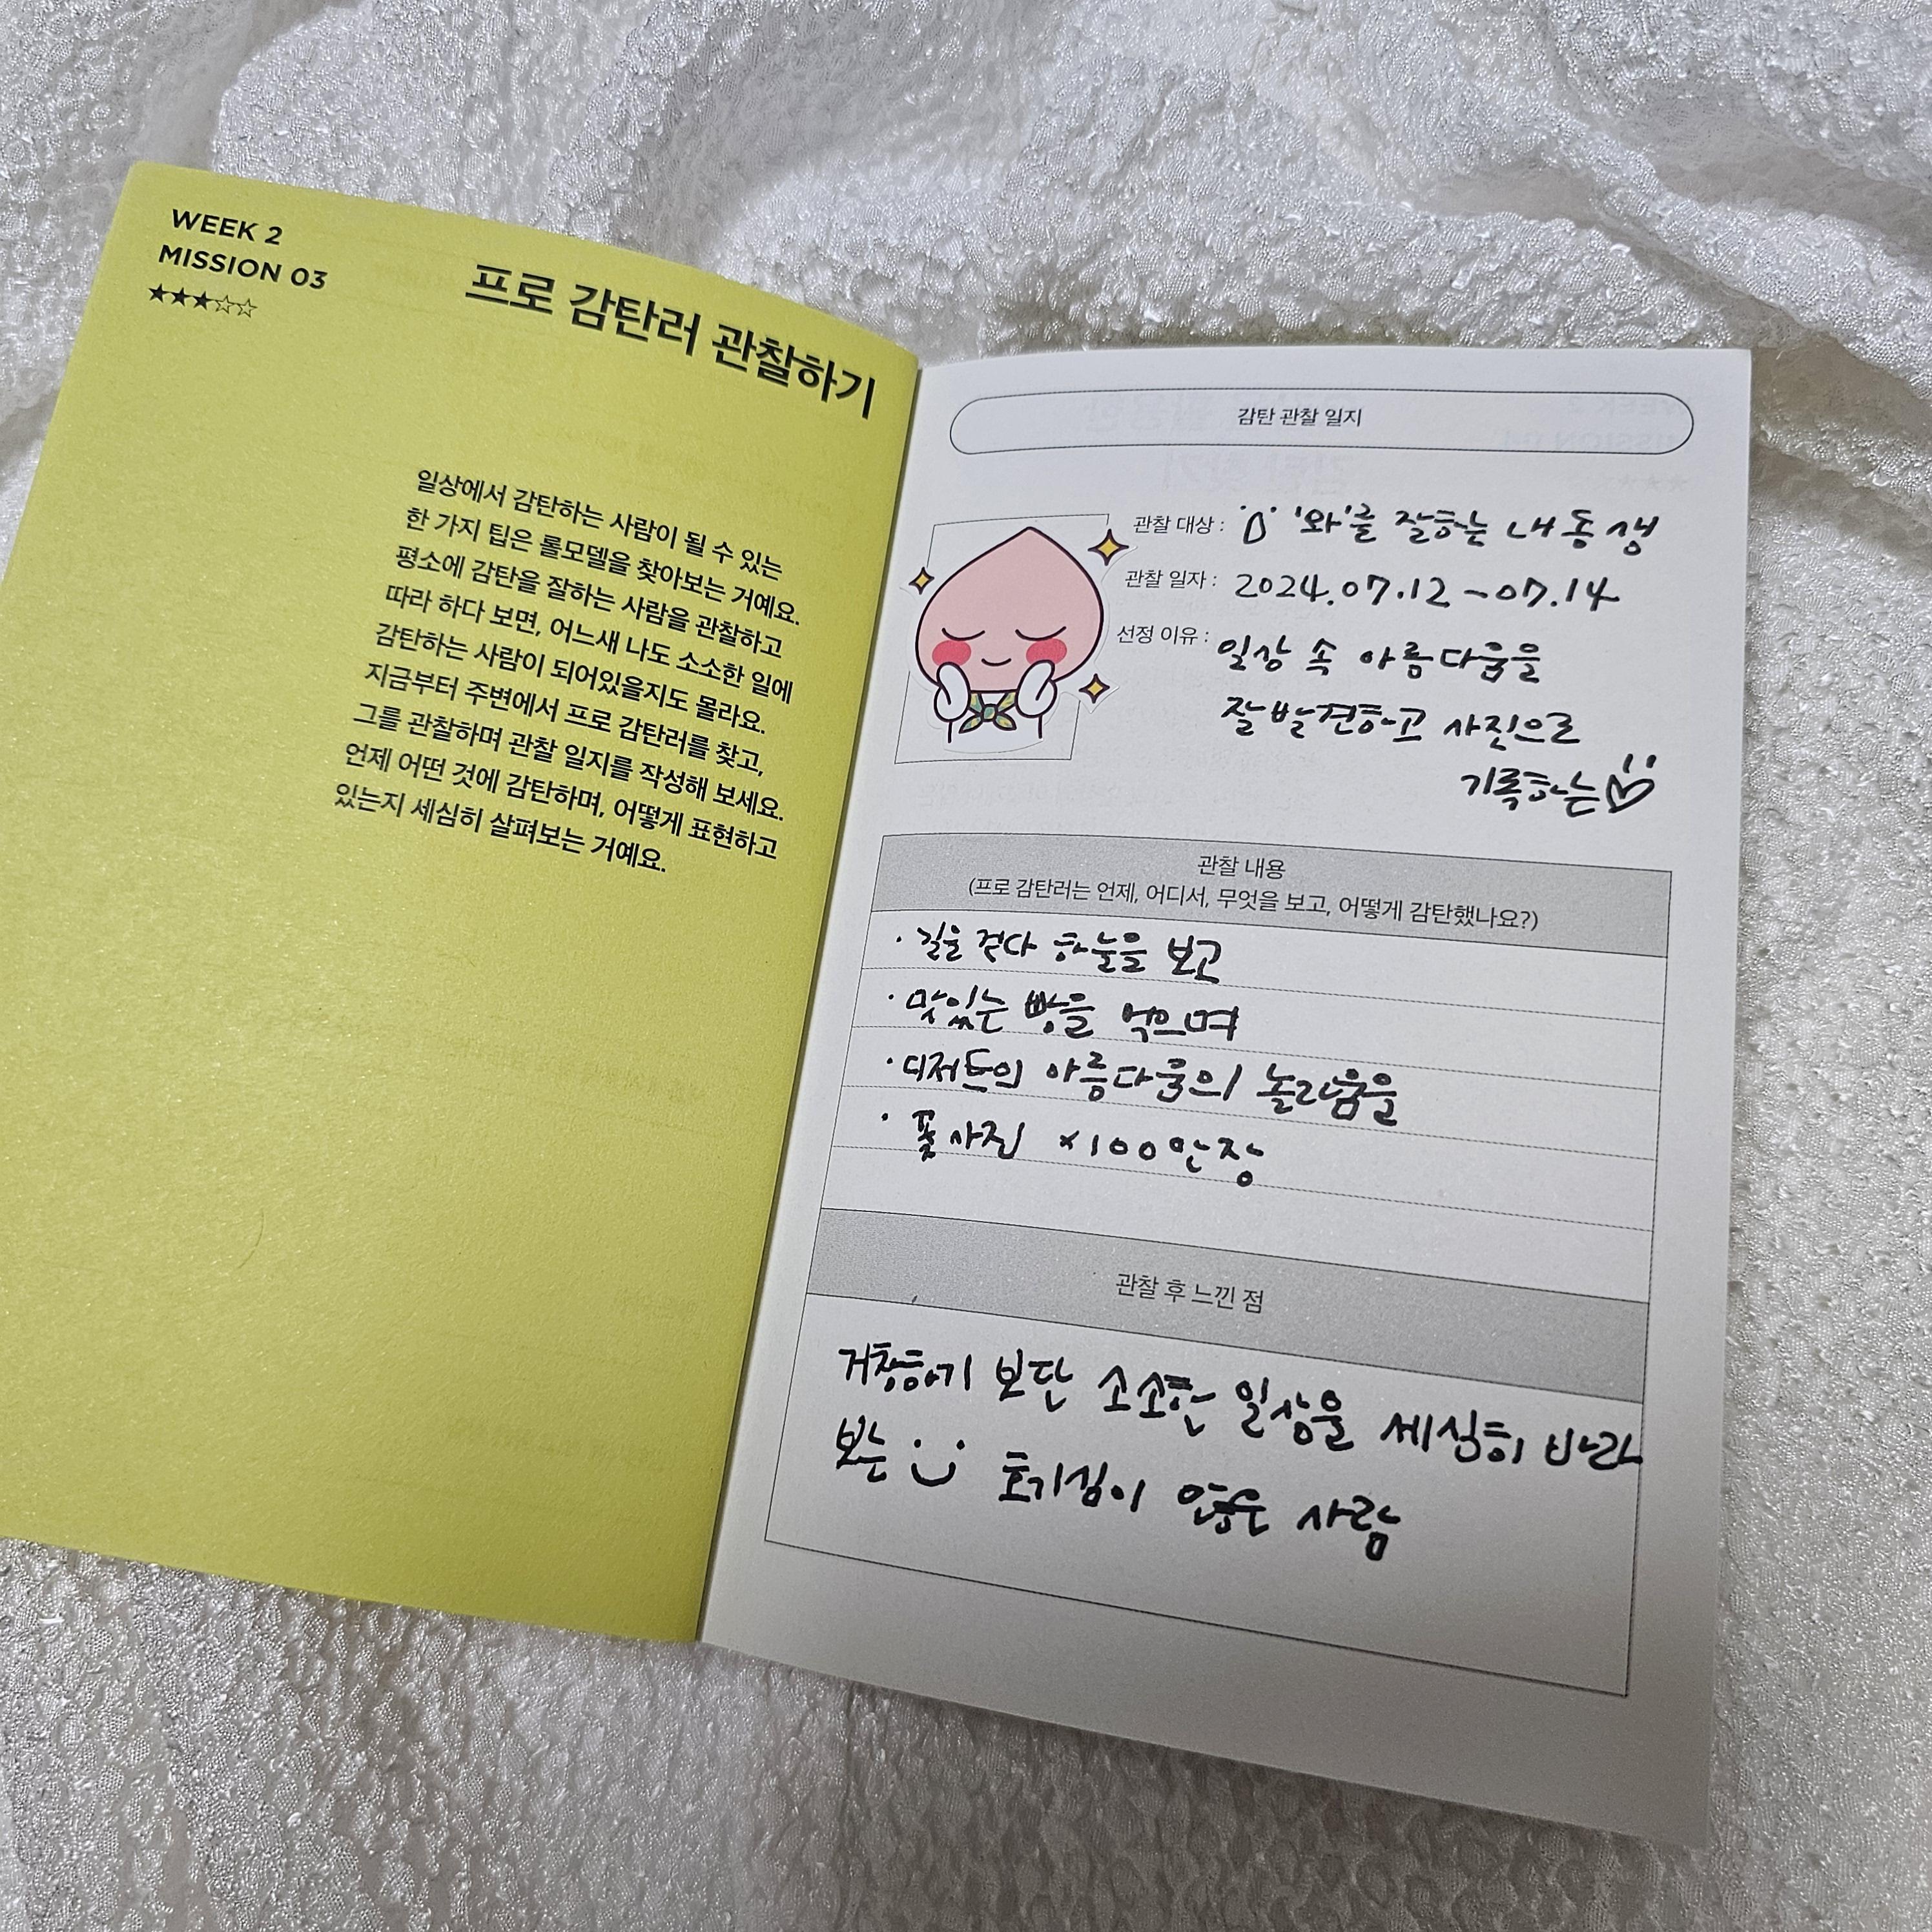 WEEK 2
MISSION 03
★★★☆☆
프로 감탄러 관찰하기
일상에서 감탄하는 사람이 될 수 있는
한 가지 팁은 롤모델을 찾아보는 거예요.
평소에 감탄을 잘하는 사람을 관찰하고
따라 하다 보면, 어느새 나도 소소한 일에
감탄하는 사람이 되어있을지도 몰라요.
지금부터 주변에서 프로 감탄러를 찾고,
그를 관찰하며 관찰 일지를 작성해 보세요.
언제 어떤 것에 감탄하며, 어떻게 표현하고
있는지 세심히 살펴보는 거예요.
감탄 관찰 일지
관찰 대상 : '와'를 잘하는 내 동생
관찰 일자 : 2024.07.12 ~ 07.14
선정 이유 : 일상 속 아름다움을
잘 발견하고 사진으로
기록하는
관찰 내용
(프로 감탄러는 언제, 어디서, 무엇을 보고, 어떻게 감탄했나요?)
· 길을 걷다 하늘을 보고
· 맛있는 빵을 먹으며
· 디저트의 아름다움의 놀라움을
· 꽃 사진 ×100만장
관찰 후 느낀 점
거창하기 보단 소소한 일상을 세심히 바라
보는 호기심이 많은 사람